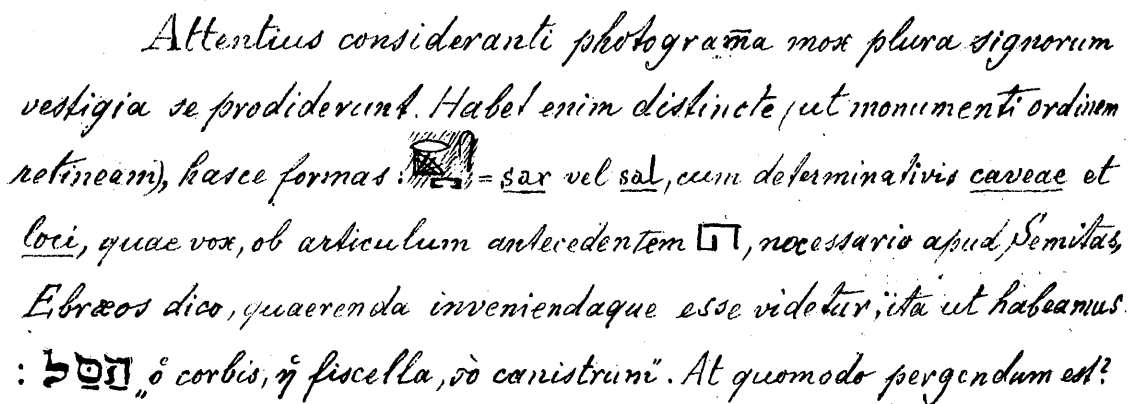 Attentius consideranti photogram̄a mox plura signorum
vestigia se prodiderunt. Habet enim distincte (ut monumenti ordinem
retineam), hasce formas: = sar vel sal, cum determinativis caveae et
loci, quae vox, ob articulum antecedentem, necessario apud Semitas,
Ebræos dico, quaerenda inveniendaque esse videtur, ita ut habeamus
: הַסַּל „ὁ corbis, ἡ fiscella, τὸ canistrum". At quomodo pergendum est?